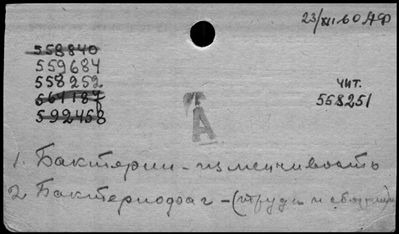 23/XII.60 ЛФ
558840
559684
558252
561187
592458
чит.
558251
А
1. Бактерии - изменчивость
2. Бактериофаг - (труды и сборники